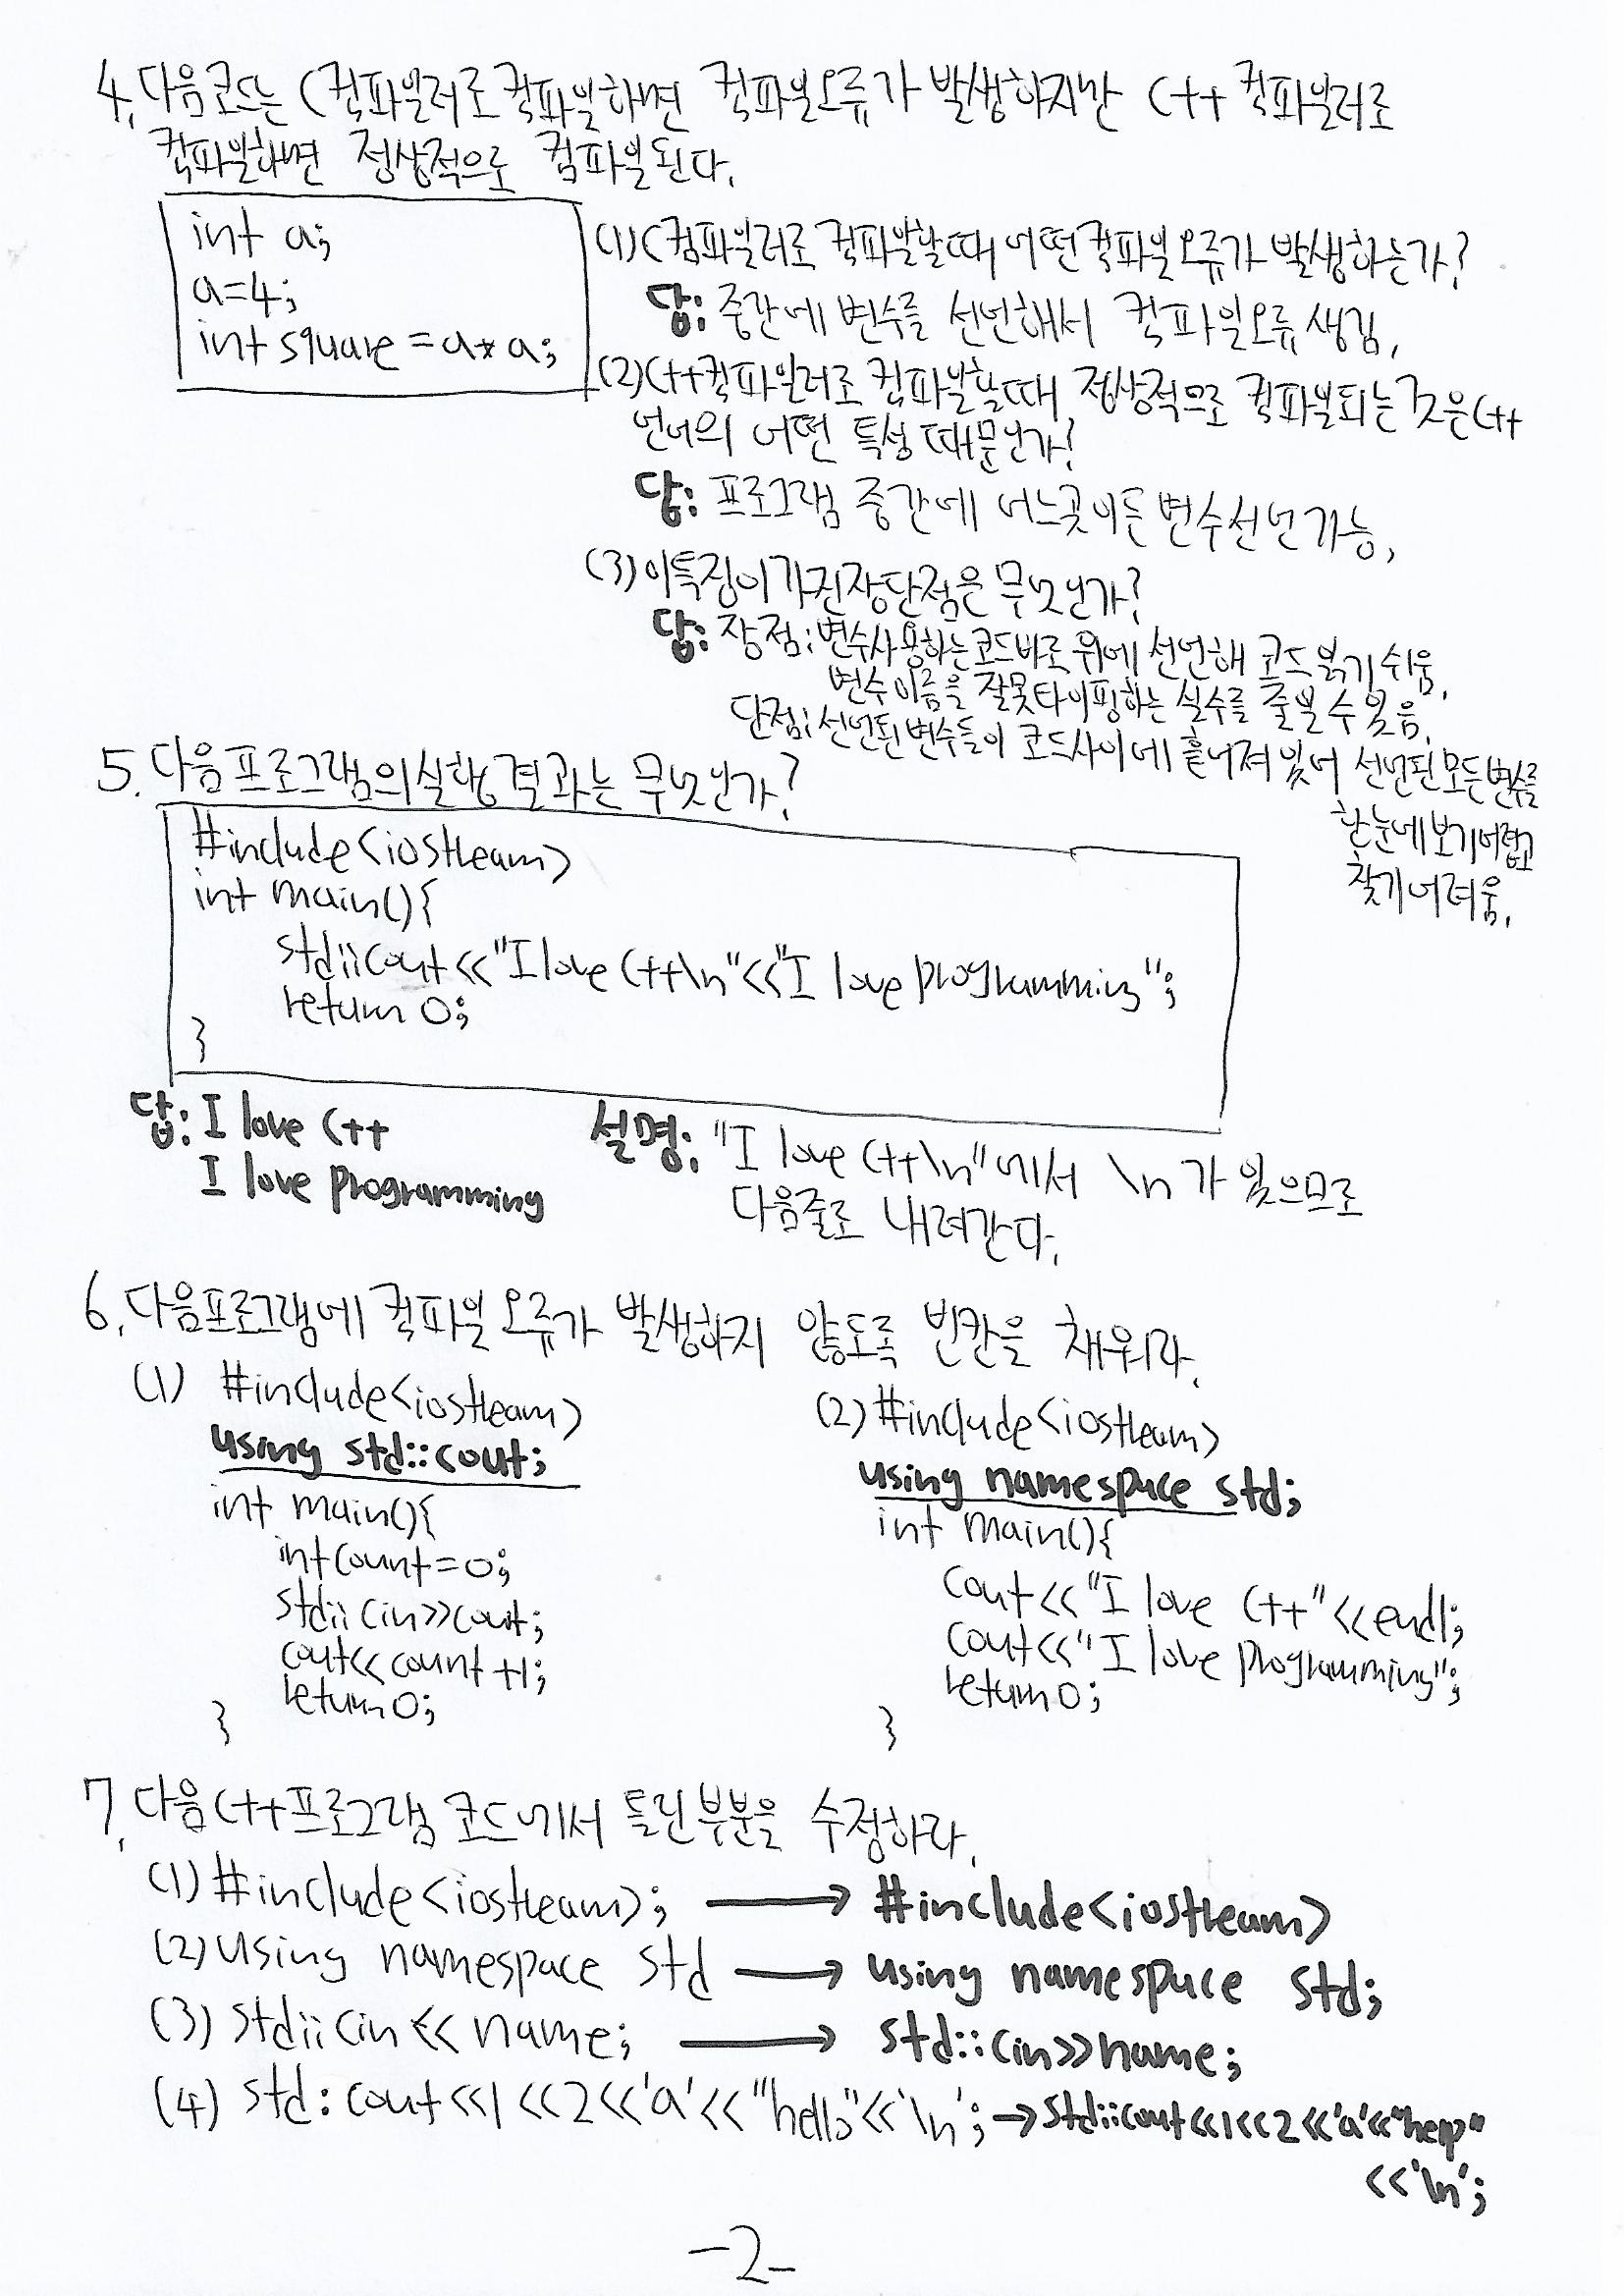 4. 다음코드는 C컴파일러로 컴파일하면 컴파일오류가 발생하지만 C++ 컴파일러로
컴파일하면 정상적으로 컴파일된다.
int a;
a=4;
int square=a*a;
(1) C컴파일러로 컴파일할때 어떤컴파일오류가 발생하는가?
답: 중간에 변수를 선언해서 컴파일오류 생김.
(2) C++컴파일러로 컴파일할때 정상적으로 컴파일되는것은 C++
언어의 어떤 특성 때문인가?
답: 프로그램 중간에 어느곳이든 변수선언가능.
(3) 이특징이가진장단점은 무엇인가?
답: 장점: 변수사용하는코드바로위에 선언해 코드 읽기 쉬움.
변수이름을 잘못타이핑하는 실수를 줄일 수 있음.
단점: 선언된변수들이 코드사이에 흩어져있어 선언된모든변수를
한눈에보기어렵고
찾기어려움.
5. 다음프로그램의실행결과는 무엇인가?
#include<iostream>
int main(){
std::cout<<"I love C++\n"<<"I love programming";
return 0;
}
답: I love C++
I love programming
설명: "I love C++\n"에서 \n가 있으므로
다음줄로 내려간다.
6. 다음프로그램에 컴파일 오류가 발생하지 않도록 빈칸을 채워라.
(1) #include<iostream>
using std::cout;
int main(){
int count=0;
std::cin>>cout;
cout<<count+1;
return 0;
}
(2) #include<iostream>
using namespace std;
int main(){
cout<<"I love C++"<<endl;
cout<<"I love programming";
return 0;
}
7. 다음 C++프로그램 코드에서 틀린부분을 수정하라.
(1) #include<iostream>; → #include<iostream>
(2) using namespace std → using namespace std;
(3) std::cin<<name; → std::cin>>name;
(4) std:cout<<1<<2<<'a'<<"hello"<<'\n'; → std::cout<<1<<2<<'a'<<"help"
<<'\n';
-2-